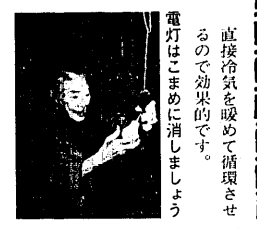 直接冷気を暖めて循環させ
るので効果的です。
電灯はこまめに消しましょう